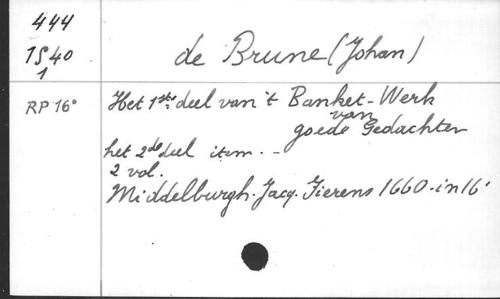 444
1540
1
de Brune (Johan)
RP 16°
Het 1ste deel van 't Banket-Werk
van
goede Gedachten
het 2de deel item. -
2 vol.
Middelburgh. Jacq. Fierens 1660 - in 16°